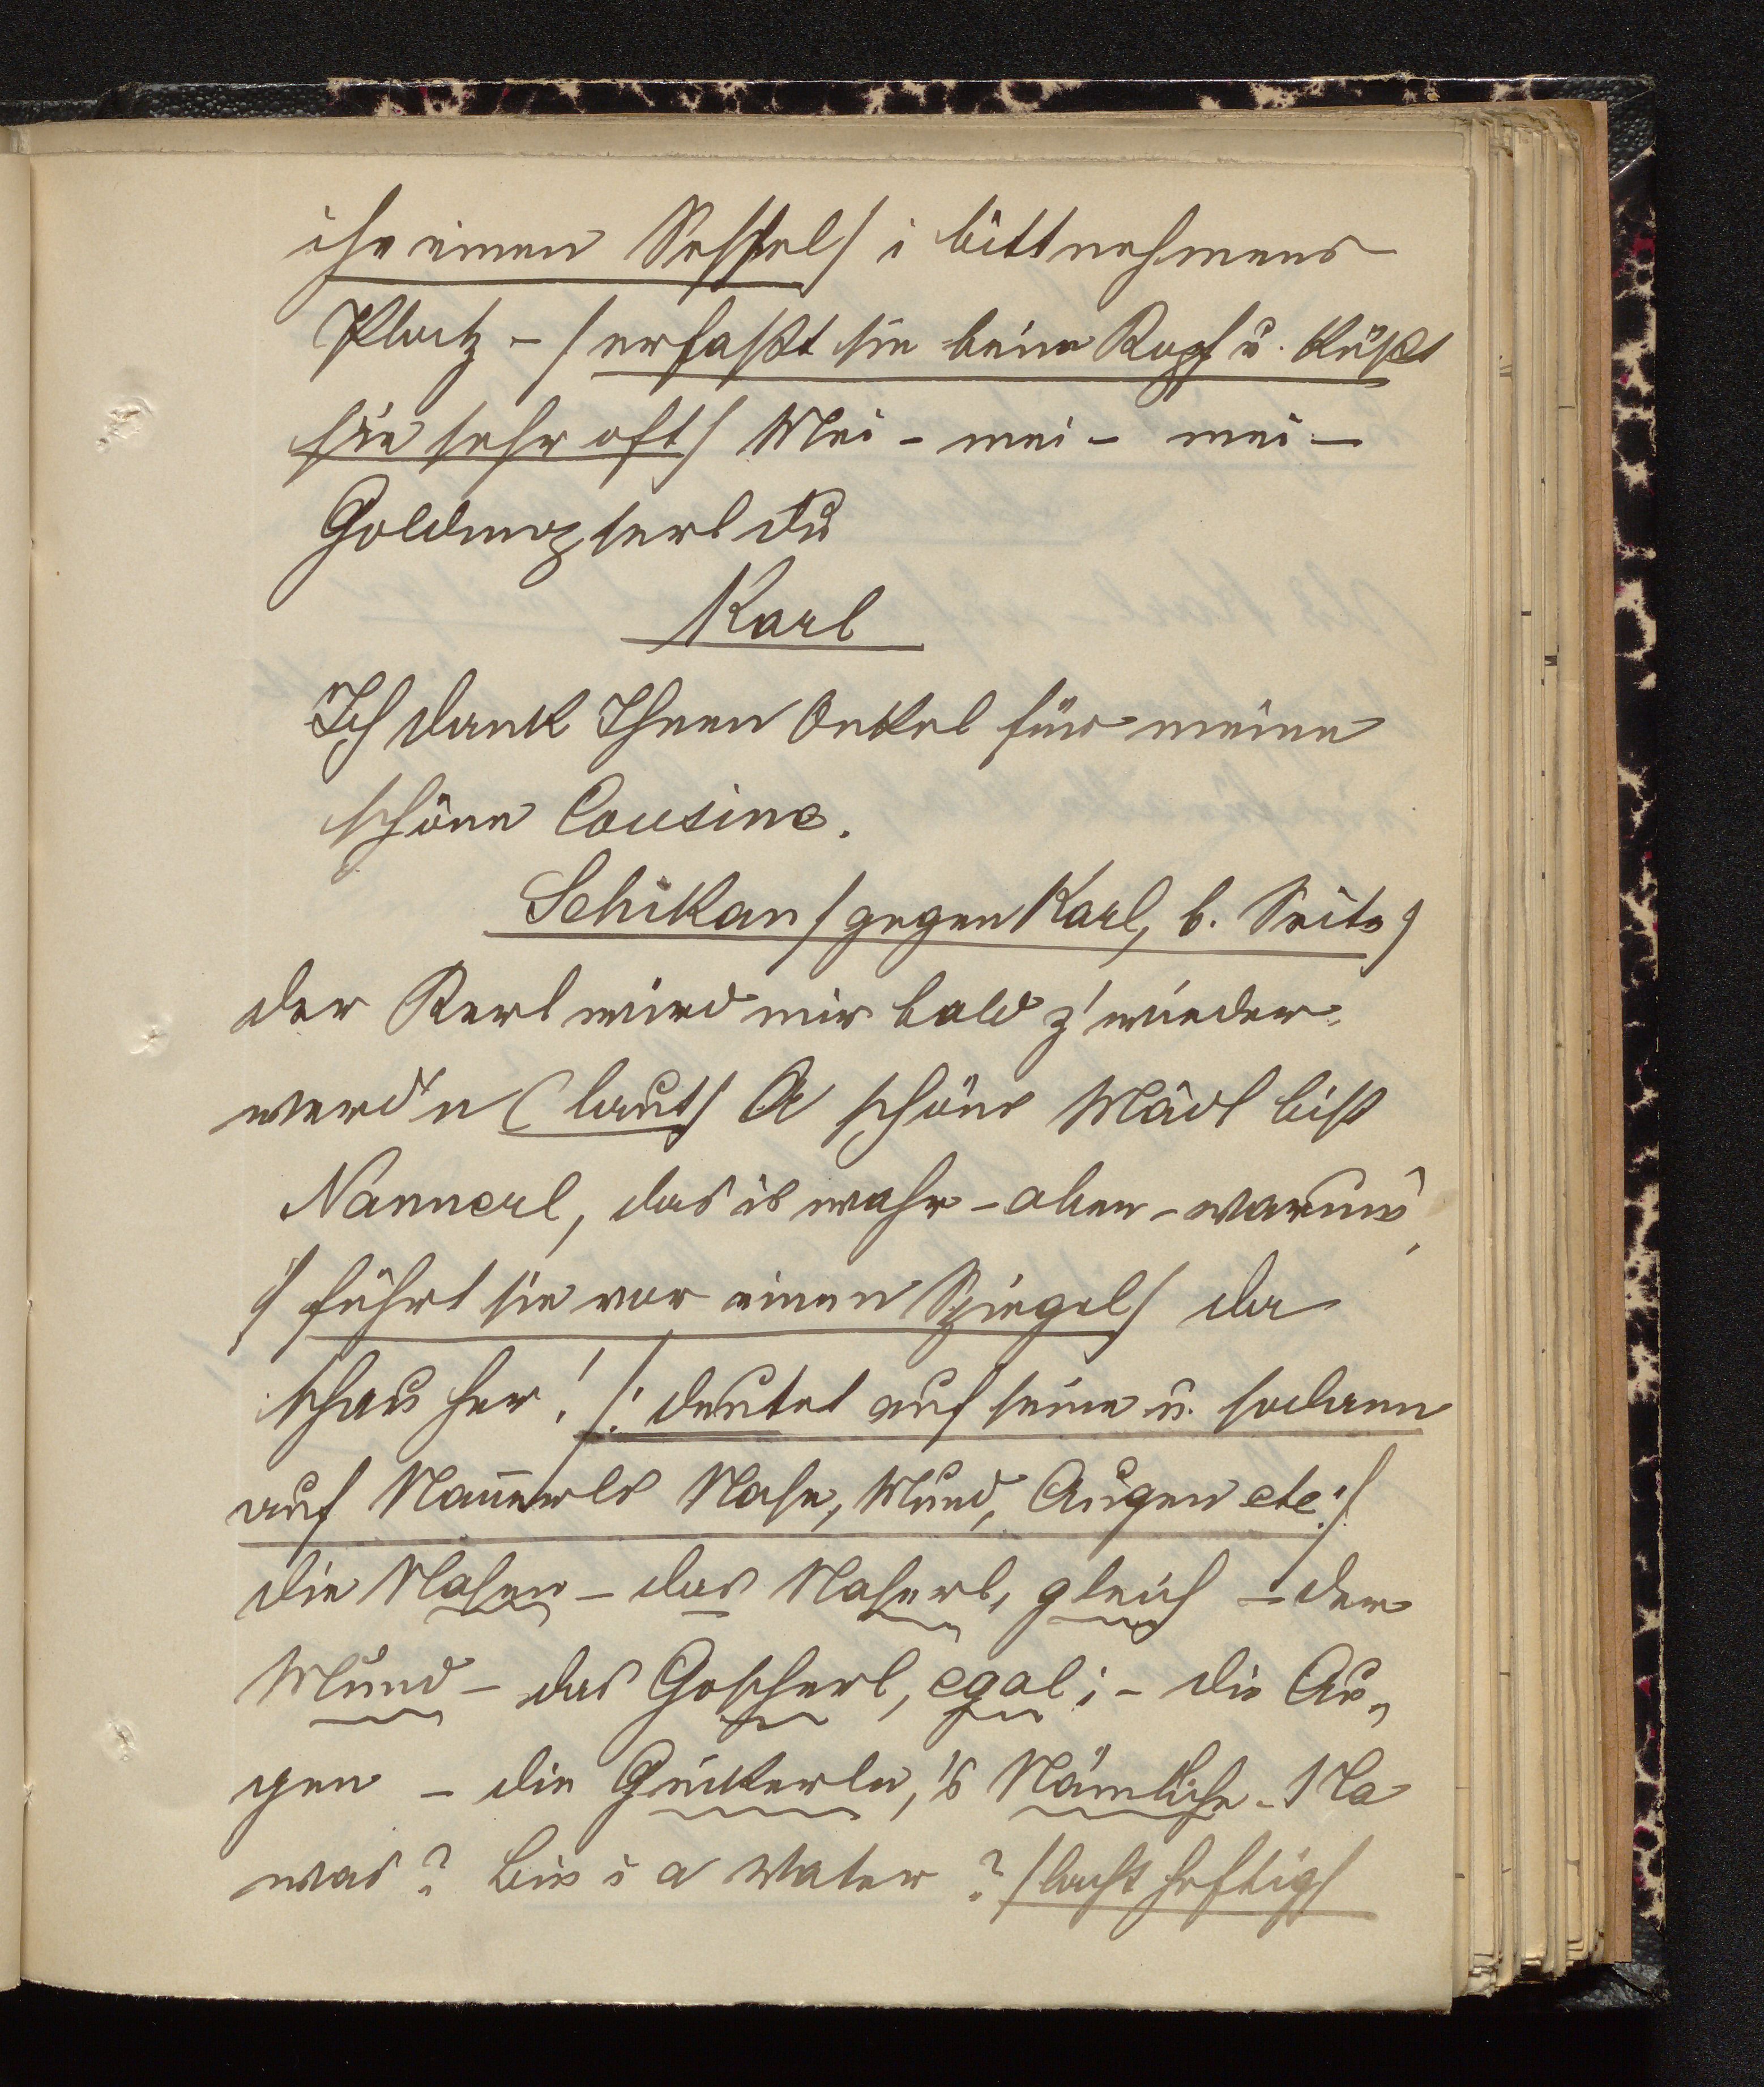 ihr einen Sessel/ i bitt nehmens
Platz – /erfaßt sie beim Kopf u. küßt
sie sehr oft/ Mei – mei – mei –
Goldmopserl du
Karl
Ich dank Ihnen Onkel für meine
schöne Cousine.
Schikan /gegen Karl, b. Seite/
der Kerl wird mir bald z'wieder
werd'n (laut/ A schöns Mädl bist
Nannerl, das is wahr – aber – warum,
/ führt sie vor einen Spiegel/ da
schau her! /: deutet auf seine u. sodann
auf Nan̄erls Nase, Mund, Augen etc:/
die Nasen – das Naserl, gleich – der
Mund – das Goscherl, egal; – die Au„
gen – die Guckerln, 's Nämliche – Na
was? bin i a Vater? /lacht heftig/